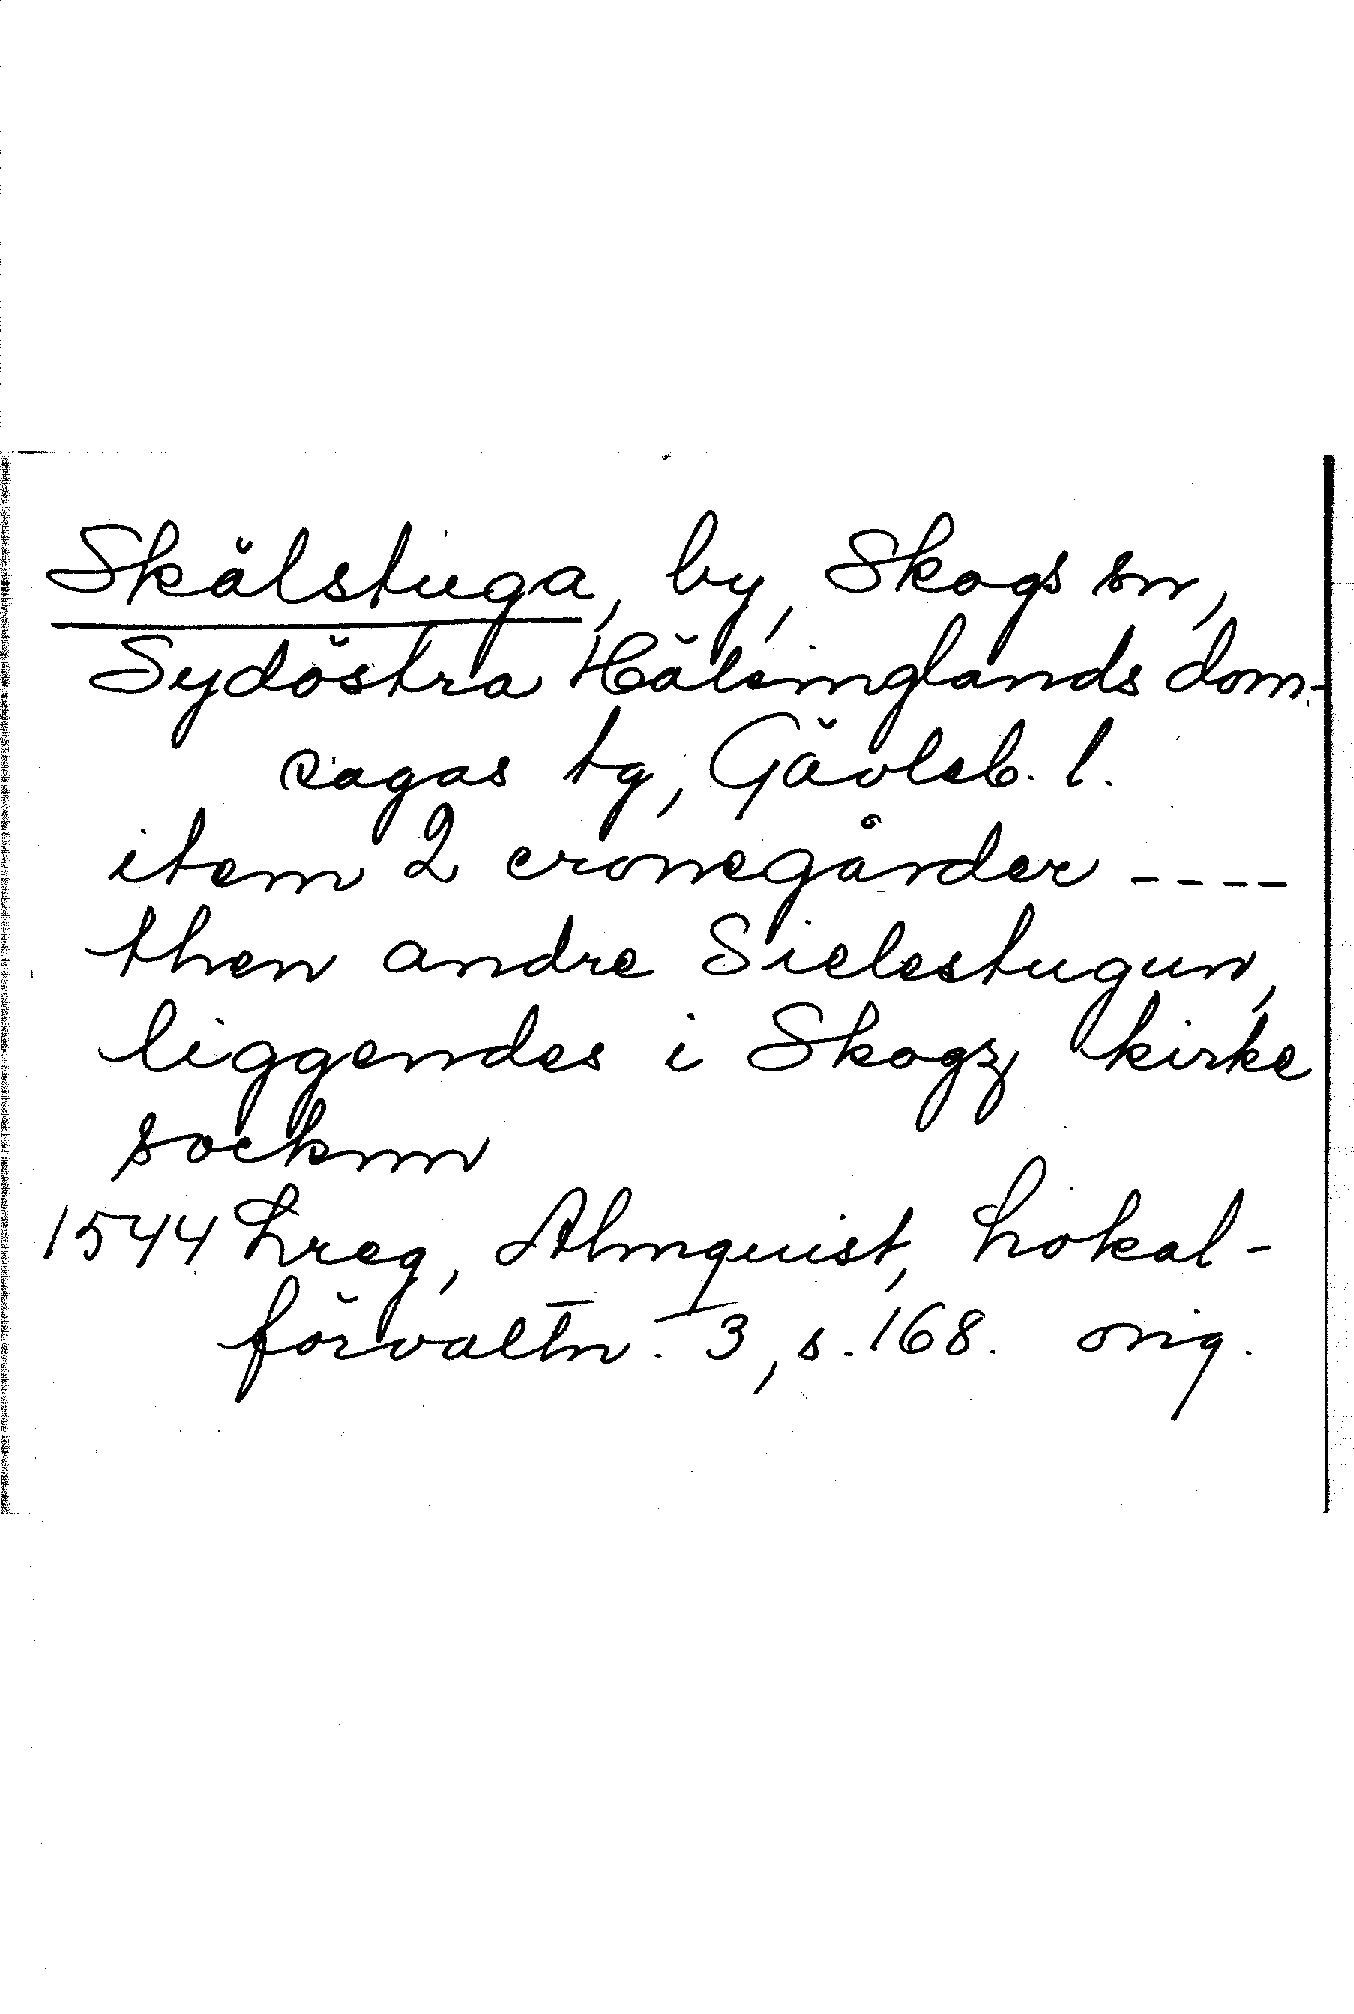 Skälstuga, by, Skogs sn,
Sydöstra Hälsinglands dom-
sagas tg, Gävleb. l.
item 2 cronegårder ----
then andre Sielestugun,
liggendes i Skogz kirke
socknn
1544 Lreg, Almquist, Lokal-
förvaltn. 3, s. 168. orig.